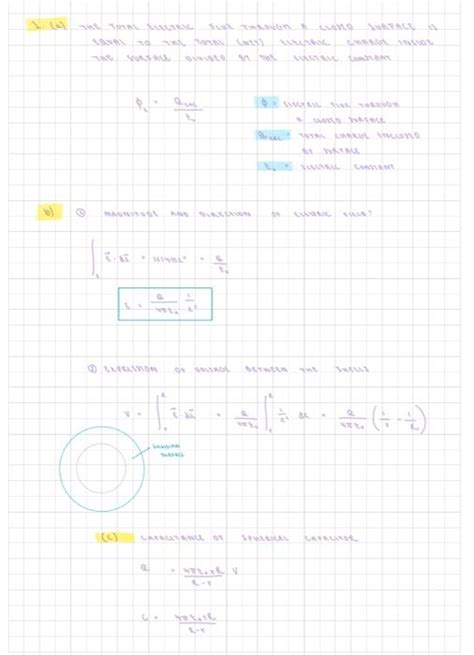 1. (a) THE TOTAL ELECTRIC FLUX THROUGH A CLOSED SURFACE IS
EQUAL TO THE TOTAL (NET) ELECTRIC CHARGE INSIDE
THE SURFACE DIVIDED BY THE ELECTRIC CONSTANT
ϕ = Q / ε₀
ϕ = ELECTRIC FLUX THROUGH
A CLOSED SURFACE
TOTAL CHARGE ENCLOSED
BY SURFACE
ε₀ = ELECTRIC CONSTANT
b) ① MAGNITUDE AND DIRECTION OF ELECTRIC FIELD:
= Q / ε₀
E = Q / 4πε₀ 1 / r²
② EXPRESSION OF VOLTAGE BETWEEN THE SHELLS
V = ∫ = Q / 4πε₀ ∫ 1 / r² dr = Q / 4πε₀ (1 / r - 1 / R)
GAUSSIAN
SURFACE
(c) CAPACITANCE OF SPHERICAL CAPACITOR
Q = 4πε₀rR / R-r V
C = 4πε₀rR / R-r